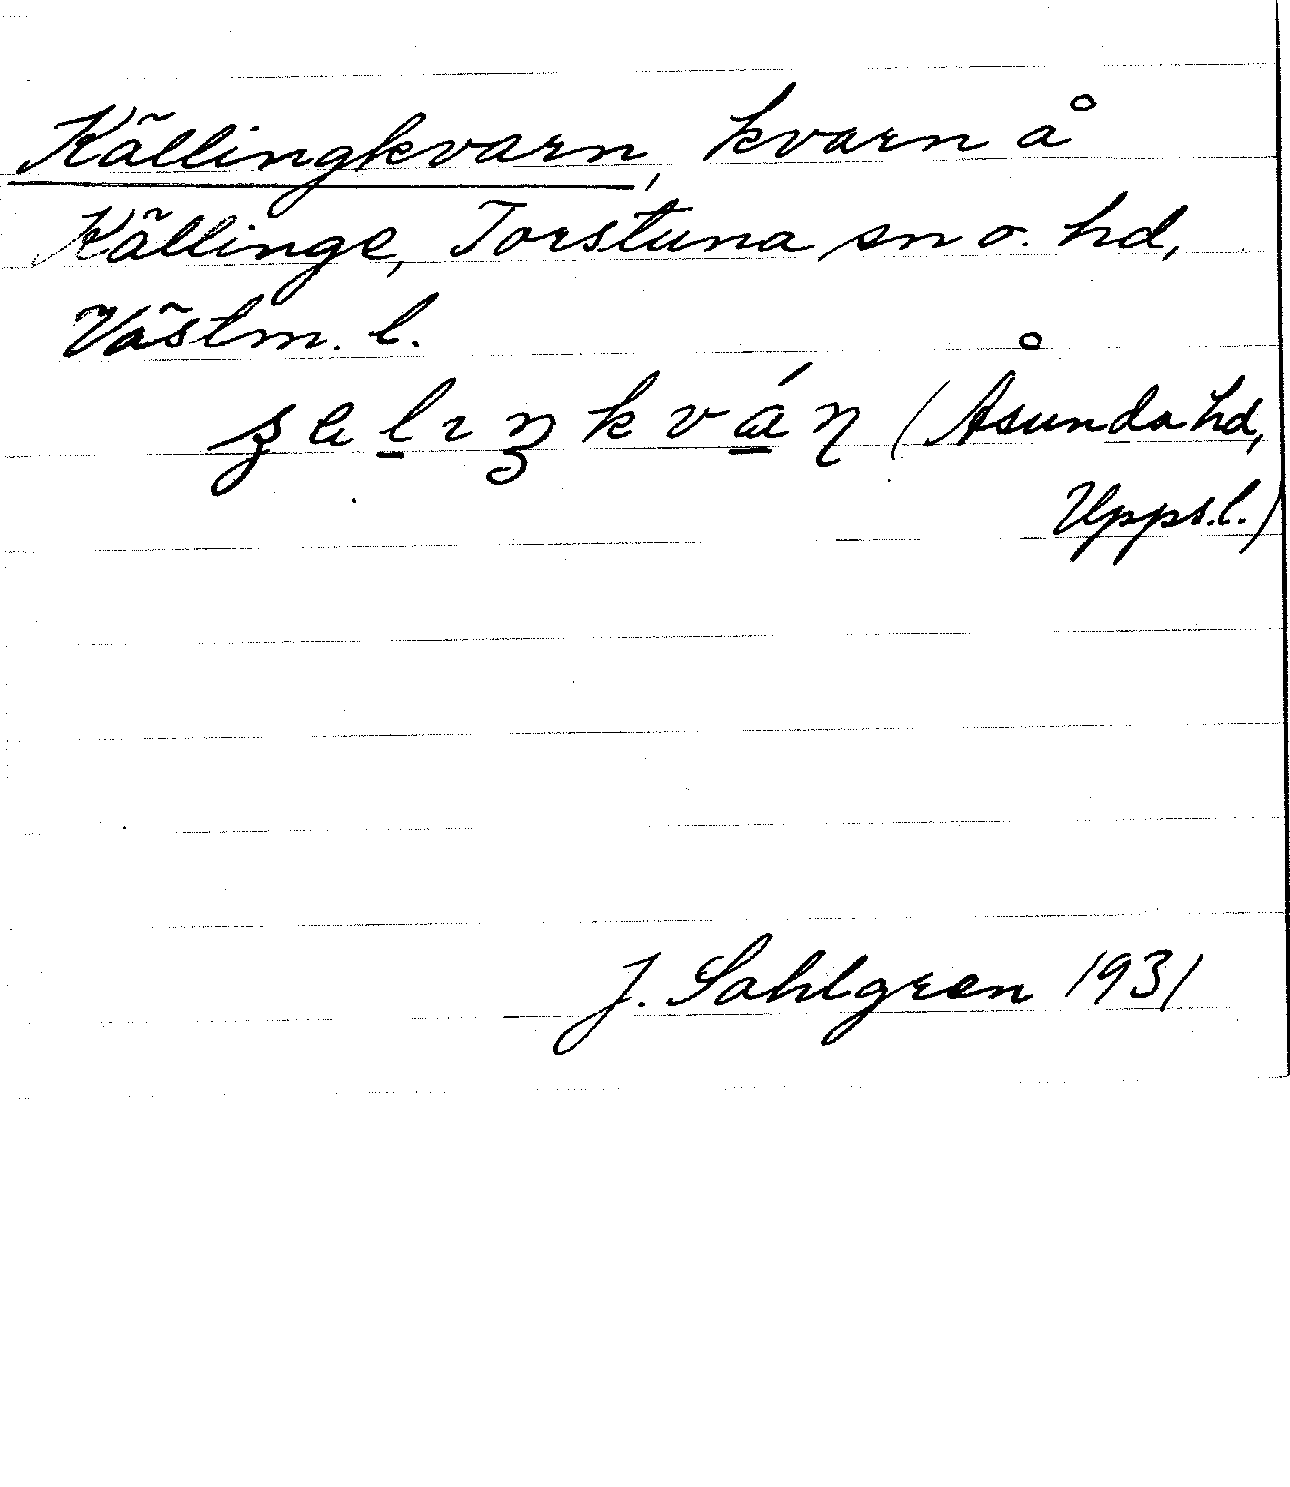 Källingkvarn, kvarn å
Källinge, Torstuna sn o. hd,
Västm. l.
(Åsunda hd,
Upps. l.)
J. Sahlgren 1931